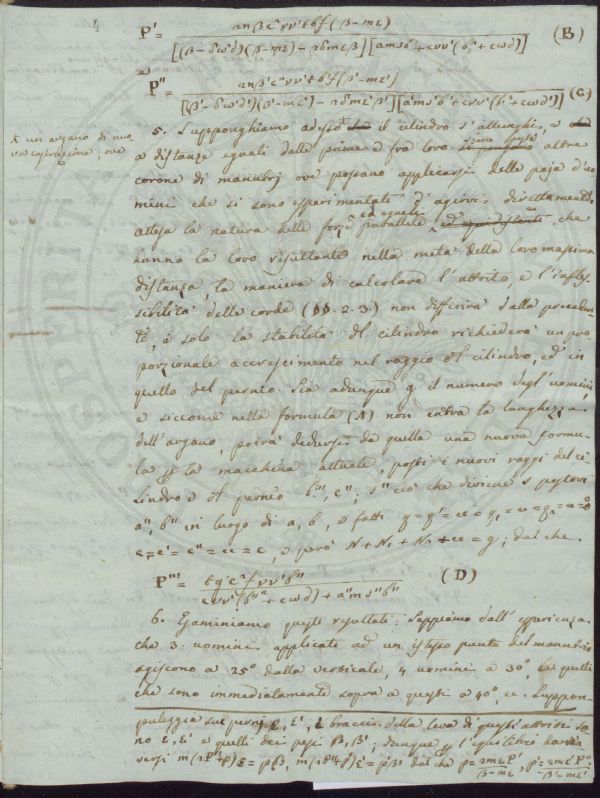 4
P' = 2nβc^n νν' t b f (β - mε) / [(β - δω'd)(β - mε) - 2δmεβ][amsb' + cνν'(b'^n + cωd)] (B)
e
P'' = 2nβ'c^n νν' t b' f (β' - mε') / [(β' - δω'd')(β' - mε') - 2δmε'β'][a'ms'b' + cνν'(b'^2 + cωd')] (C)
5. Supponghiamo adesso che il cilindro s'allunghi, e
a distanze eguali dalle prime e fra loro siano poste altre
corone di manubrj ove possano applicarsi delle paja d'uo-
mini che si sono esperimentati d'agirvi direttamente
attesa la natura delle forze parallele ed eguali che
hanno la loro risultante nella metà della loro massima
distanza, la maniera di calcolare l'attrito, e l'infles-
sibilità delle corde (§§. 2. 3.) non differirà dalla preceden-
te, e solo la stabilità del cilindro richiederà un pro-
porzionale accrescimento nel raggio del cilindro, ed in
quello del pernio. Sia adunque g il numero degl'uomini,
e siccome nella formula (A) non entra la lunghezza
dell'argano, potrà dedursi da quella una nuova formu-
la per la macchina attuale, posti i nuovi raggi del ci-
lindro e del pernio b''', c''; s'' ciò che diviene s postovi
a'', b'' in luogo di a, b, e fatti
c = c' = c'' = cc = c, e però N + N₁ + N₂ + cc = g; dal che
P''' = tgc^2 f νν' b'' / cνν'(b''^2 + cωd) + a''ms''b'' (D)
6. Esaminiamo questi resultati: sappiamo dall'esperienza
che 3 uomini applicati ad un istesso punto del manubrio
agiscono a 25° dalla verticale, 4 uomini a 30°, quelli
che sono immediatamente sopra a questi a 40°, Suppon-
puleggia sui pernj e le braccia della leva di questi attriti so-
no ε, ε' e quelli dei pesi β, β'; dunque per l'equilibrio
versi m(2P''+p)ε = pβ, m(2P''+p)ε' = p'β' dal che p = 2mεP'/β-mε, p' = 2mε'P''/β'-mε'
ad un argano di nuo-
va costruzione, ove